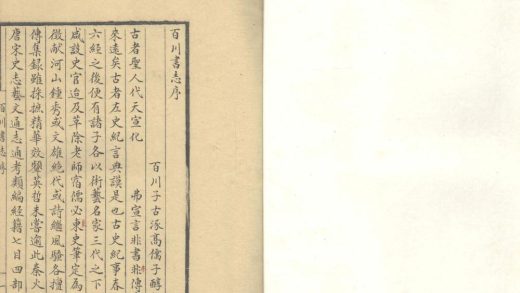 百川書志序
百川子古涿高儒子醇
古者聖人代天宣化　弗宣言非書非傳
來遠矣古者左史紀言典謨是也古史紀事春
六經之後便有諸子各以術藝名家三代之下
咸設史官迨及草除老師宿儒必東史筆定為
徵献河山鍾秀或文雄絶代或詩繼風騷各擅
傳集録雖採摭精華效顰英哲未嘗逾此秦火
唐宋史志藝文通志通考類編經籍七目四部
百川書志序